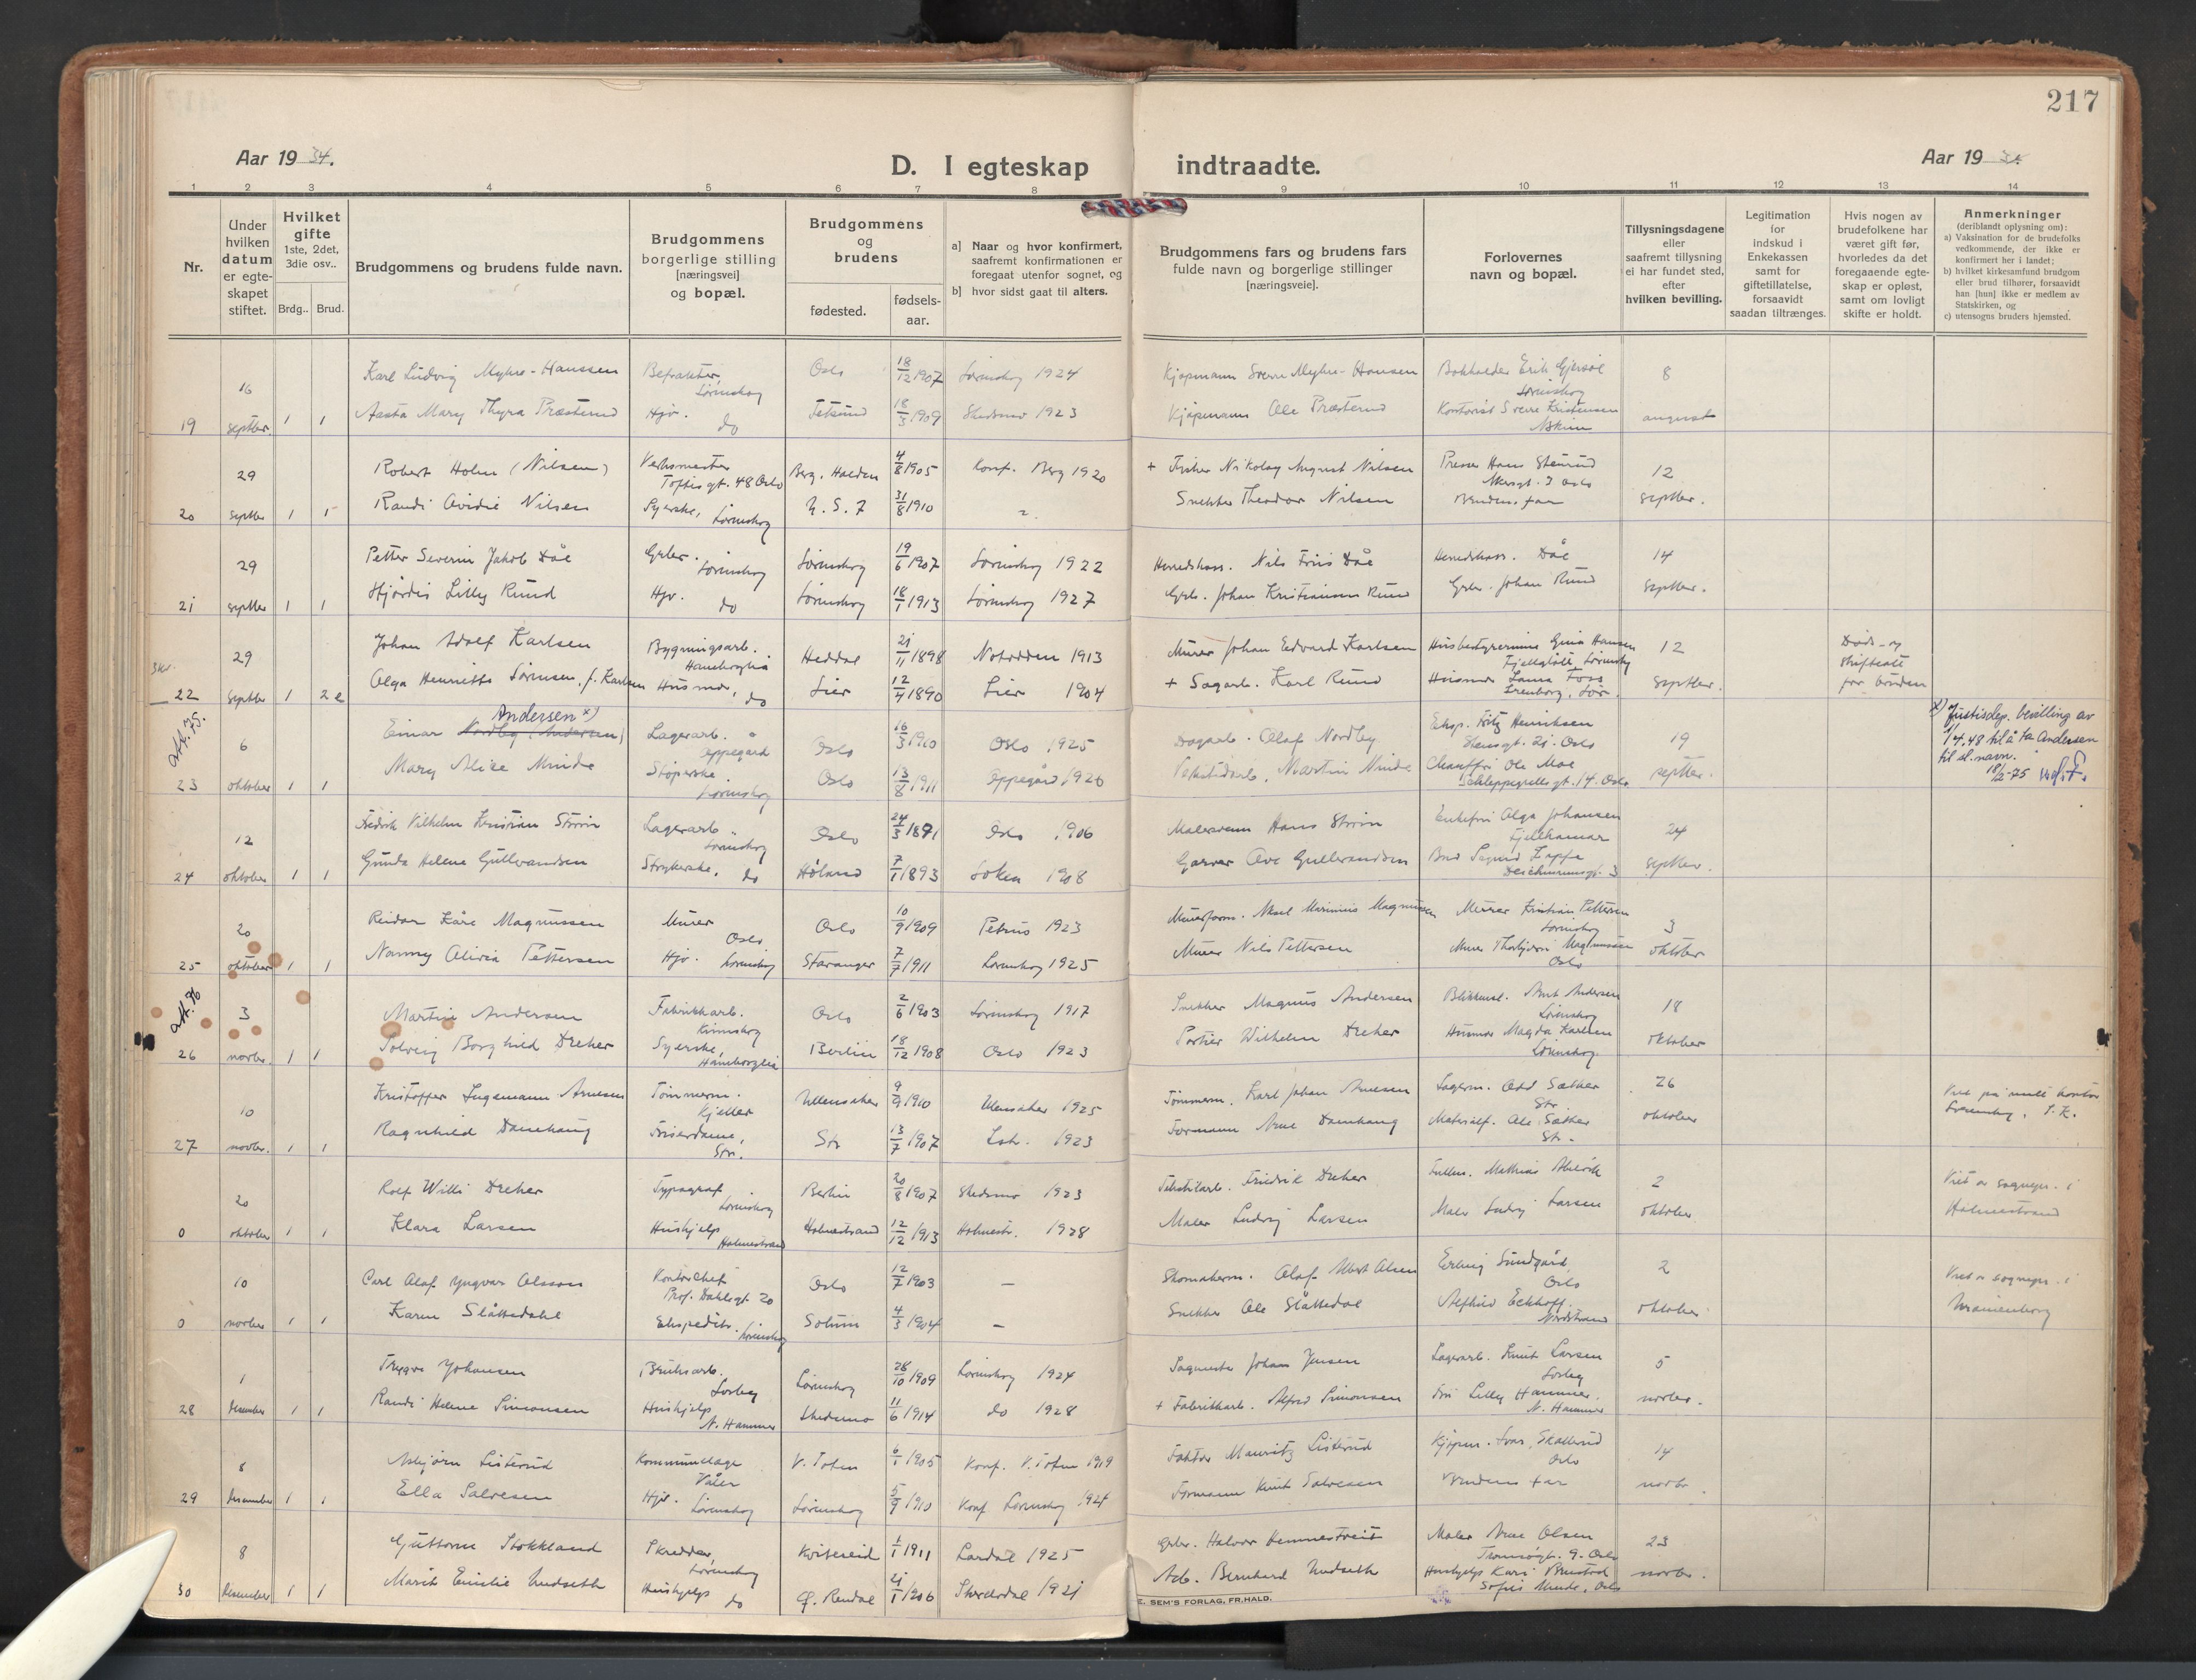 217
Aar 1934.
D. I egteskap indtraadte.
Aar 193
1 2 3 4 5 6 7 8 9 10 11 12 13 14
Nr.
Under hvilken datum er egte-skapet stiftet.
Hvilket gifte
1ste, 2det, 3die osv..
Brdg.. Brud.
Brudgommens og brudens fulde navn.
Brudgommens borgerlige stilling [næringsvei] og bopæl.
Brudgommens og brudens
fødested.
fødsels-aar.
a] Naar og hvor konfirmert, saafremt konfirmationen er foregaat utenfor sognet, og
b] hvor sidst gaat til alters.
Brudgommens fars og brudens fars fulde navn og borgerlige stillinger [næringsveie].
Forlovernes navn og bopæl.
Tillysningsdagene eller saafremt tillysning ei har fundet sted, efter hvilken bevilling.
Legitimation for indskud i Enkekassen samt for giftetillatelse, forsaavidt saadan tiltrænges.
Hvis nogen av brudefolkene har været gift før, hvorledes da det foregaaende egte-skap er opløst, samt om lovligt skifte er holdt.
Anmerkninger
(deriblandt oplysning om):
a) Vaksination for de brudefolks vedkommende, der ikke er konfirmert her i landet;
b) hvilket kirkesamfund brudgom eller brud tilhører, forsaavidt han [hun] ikke er medlem av Statskirken, og
c) utensogns bruders hjemsted.
16 Karl Ludvig Myhre-Hanssen Befrakter, Lørenskog Oslo 18/12 1907 Lørenskog 1924 Kjøpmann Sverre Myhre-Hansen Bokholder Erik Gjersøe Lørenskog 8
19 septber. 1 1 Aasta Mary Thyra Præsterud Hjv. do Fetsund 18/3 1909 Skedsmo 1923 Kjøpmann Ole Præsterud Kontorist Sverre Kristensen Askim august
29 Robert Holm (Nilsen) Verksmester Toftesgt. 48 Oslo Berg. Halden 4/8 1905 Konf. Berg 1920 + Fisker Nikolay August Nilsen Hans Stenrud Akersgt. 3 Oslo 12
20 septber 1 1 Randi Ovidie Nilsen Syerske, Lørenskog U.S.A 31/8 1910 Snekker Theodor Nilsen Brudens far septber.
29 Petter Severin Jakob Dåe Grbr. Lørenskog Lørenskog 19/6 1907 Lørenskog 1922 Herredskass. Nils Friis Dåe Herredskass. Dåe 14
21 septber 1 1 Hjørdis Lilly Rund Hjv. do Lørenskog 18/1 1913 Lørenskog 1927 Grb. Johan Kristiansen Rund Grbr. Johan Rund septber.
29 Johan Adolf Karlsen Bygningsarb. Haneborglia Heddal 21/11 1898 Notodden 1913 Murer Johan Edvard Karlsen Husbestyrerinne Gina Hansen Lørenskog 12 Døds- og skifteatt for bruden
22 septber 1 2e Olga Henriette Sørensen, f. Karlsen Husmor, do Lier 12/4 1890 Lier 1904 + Sagarb. Karl Rund Husmor Laura Foss Lør. septber.
att. 75. Andersen x)
6 Einar Nordby (Andersen) Lagerarb. Oppegård Oslo 16/3 1910 Oslo 1925 Dagarb. Olaf Nordby Eksp. Fritz Henriksen Stensgt. 21. Oslo 19
x) Justisdep. bevilling av 1/4.48 til å ta Andersen til sl.navn. 18/2-75
23 oktober 1 1 Mary Alice Minde Lørenskog Oslo 13/8 1911 Oppegård 1926 Tekstilarb. Martin Minde Chauffør Ole Moe Schleppegrellsgt. 14. Oslo septber.
12 Fredrik Vilhelm Kristian Strøm Lagerarb. Lørenskog Oslo 24/3 1891 Oslo 1906 Malersvenn Hans Strøm Enkefru Olga Johansen Fjellhamar 24
24 oktober 1 1 Gunda Helene Gullerandsen Strykerske. do Høland 7/1 1893 Løken 1908 Garver Ove Gullerandsen Bud Sigurd Zappe Deichmannsgt. 3 septber.
20 Reidar Kåre Magnussen Murer Oslo Oslo 10/9 1909 Petrus 1923 Murerform. Aksel Marinius Magnussen Murer Kristian Pettersen Lørenskog 3
25 oktober 1 1 Nanny Olivia Pettersen Hjv. Lørenskog Stavanger 7/7 1911 Lørenskog 1925 Murer Nils Pettersen Murer Thorbjørn Magnussen Oslo oktober
att. 76
3 Martin Andersen Fabrikkarb. Lørenskog Oslo 2/6 1903 Lørenskog 1917 Snekker Magnus Andersen Arnt Andersen Lørenskog 18
26 novbr. 1 1 Solveig Borghild Dreher Syerske, Haneborglia Berlin 18/12 1908 Oslo 1923 Portier Wilhelm Dreher Husmor Magda Karlsen Lørenskog. oktober
10 Kristoffer Ingemann Arnesen Tømmerm. Kjeller Ullensaker 9/9 1910 Ullensaker 1925 Tømmerm. Karl Johan Arnesen Lagerm. Odd Sæther Str. 26
27 novbr. 1 1 Ragnhild Damhaug Friserdame, Str. Str 13/7 1907 Lstr. 1923 Formann Arne Damhaug Materialf. Ole Sæther Str. oktober
20 Rolf Willi Dreher Typograf Lørenskog Berlin 20/8 1907 Skedsmo 1923 Tekstilarb. Friedrik Dreher Mathias 2 Viet av sogneprs. i
0 oktober 1 1 Klara Larsen Hushjelp Holmestrand Holmestrand 12/12 1913 Holmestr. 1928 Maler Ludvig Larsen Maler Ludvig Larsen oktober Holmestrand
10 Carl Olaf Yngvar Olsson Kontorchef Prof. Dahlsgt. 20 Oslo 12/7 1903 — Skomakerm. Olaf Albert Olsen Erling Sundgård, Oslo 2 Viet av sogneprs. i
0 novber 1 1 Karen Slåttedahl Ekspeditr. Lørenskog Solum 4/3 1904 — Snekker Ole Slåttedal Alfhild Eckhoff. Nordstrand oktober Uranienborg
1 Trygve Johansen Bruksarb. Losby Lørenskog 28/10 1909 Lørenskog 1924 Sagmester Johan Jensen Lagerarb. Knut Larsen Losby 5
28 desember 1 1 Randi Helene Simonsen Hushjelp N. Hammer Skedsmo 11/6 1914 do 1928 + Fabrikkarb. Alfred Simonsen Fru Lilly Hammer. N. Hammer novber.
8 Asbjørn Listerud Våler V. Toten 6/1 1905 Konf. V. Toten 1919 Faktor Mauritz Listerud Kjøpm. Skallerud Oslo 14
29 desember 1 1 Ella Salvesen Hjv. Lørenskog Lørenskog 5/9 1910 Konf. Lørenskog 192 Formann Knut Salvesen Brudens far novbr.
8 Guttorm Stokkland Skredder, Lørenskog Kviteseid 1/1 1911 Lardal 1925 Grbr. Halvor Hemmestveit Maler Arne Olsen Tromsøgt. 9. Oslo 23
30 desember 1 1 Marit Emilie Undseth Hushjelp do Ø. Rendal 21/1 1906 1921 Arb. Bernhard Undseth Hushjelp Kari Brustad Sofies Minde, Oslo novbr.
E. SEM'S FORLAG, FR.HALD.